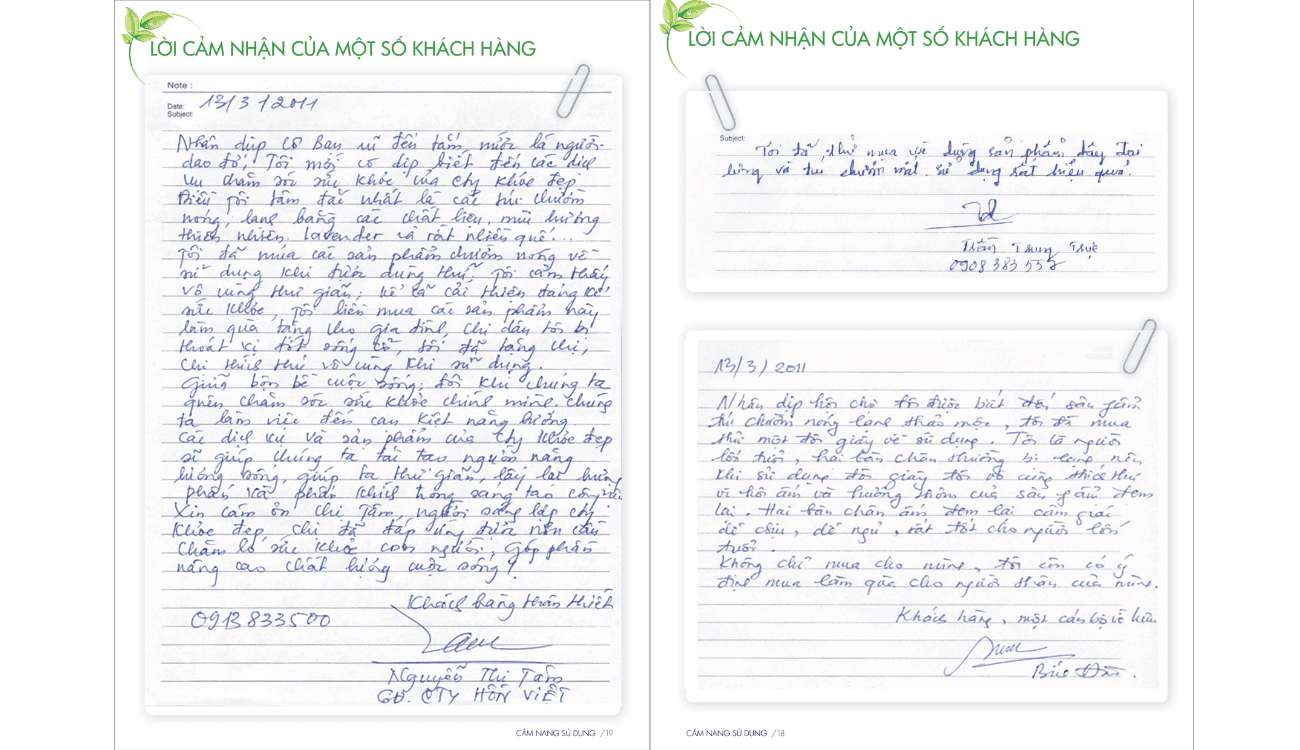 LỜI CẢM NHẬN CỦA MỘT SỐ KHÁCH HÀNG
Note :
Date: 13/3/2011
Subject:
Nhân dịp cô bạn đến tắm, mức là người
dao đỏ, Tôi mới có dịp biết đến các dịch
vụ chăm sóc sức khỏe của Cty Khỏe đẹp
Điều tôi tâm đắc nhất là các túi chườm
nóng, lạnh bằng các chất liệu, mùi hương
thiên nhiên. lavender và rất nhiều quế...
Tôi đã mua các sản phẩm chườm nóng về
sử dụng khi được dùng thử, tôi cảm thấy
vô cùng thư giãn, kể cả cải thiện đáng kể
sức khỏe, tôi liền mua các sản phẩm này
làm quà tặng cho gia đình, chị dâu tôi bị
thoát vị đốt sống cổ, tôi đã tặng chị,
chị thích thú vô cùng khi sử dụng.
Giữa bộn bề cuộc sống, đôi khi chúng ta
quên chăm sóc sức khỏe chính mình. chúng
ta làm việc đến cạn kiệt năng lượng.
Các dịch vụ và sản phẩm của Cty Khỏe đẹp
sẽ giúp chúng ta tái tạo nguồn năng
lượng sống, giúp ta thư giãn, lấy lại hưng
phấn và phấn khích trong sáng tạo công việc
Xin cảm ơn chị Tâm, người sáng lập cty
Khỏe đẹp, chị đã đáp ứng được nhu cầu
chăm lo sức khỏe con người, góp phần
nâng cao chất lượng cuộc sống!
Khách hàng thân thiết
0913 833500
Nguyễn Thị Tâm
GĐ. CTY HỒN VIỆT
CẨM NANG SỬ DỤNG /19
LỜI CẢM NHẬN CỦA MỘT SỐ KHÁCH HÀNG
Subject:
Tôi đã thử mua về dụng sản phẩm dây đai
lưng và túi chườm mắt. sử dụng rất hiệu quả.
Trần Trung Trực
0908 383 557
13/3/2011
Nhân dịp hội chợ tôi được biết đến sản phẩm
túi chườm nóng lạnh thảo mộc, tôi đã mua
thử một đôi giày về sử dụng. Tôi là người
lớn tuổi, hai bàn chân thường bị lạnh nên
khi sử dụng đôi giày tôi vô cùng thích thú
vì hơi ấm và hương thơm của sản phẩm đem
lại. Hai bàn chân ấm đem lại cảm giác
dễ chịu, dễ ngủ, rất tốt cho người lớn
tuổi.
Không chỉ mua cho mình, tôi còn có ý
định mua làm quà cho người thân của mình.
Khách hàng, một cán bộ về hưu
CẨM NANG SỬ DỤNG /18